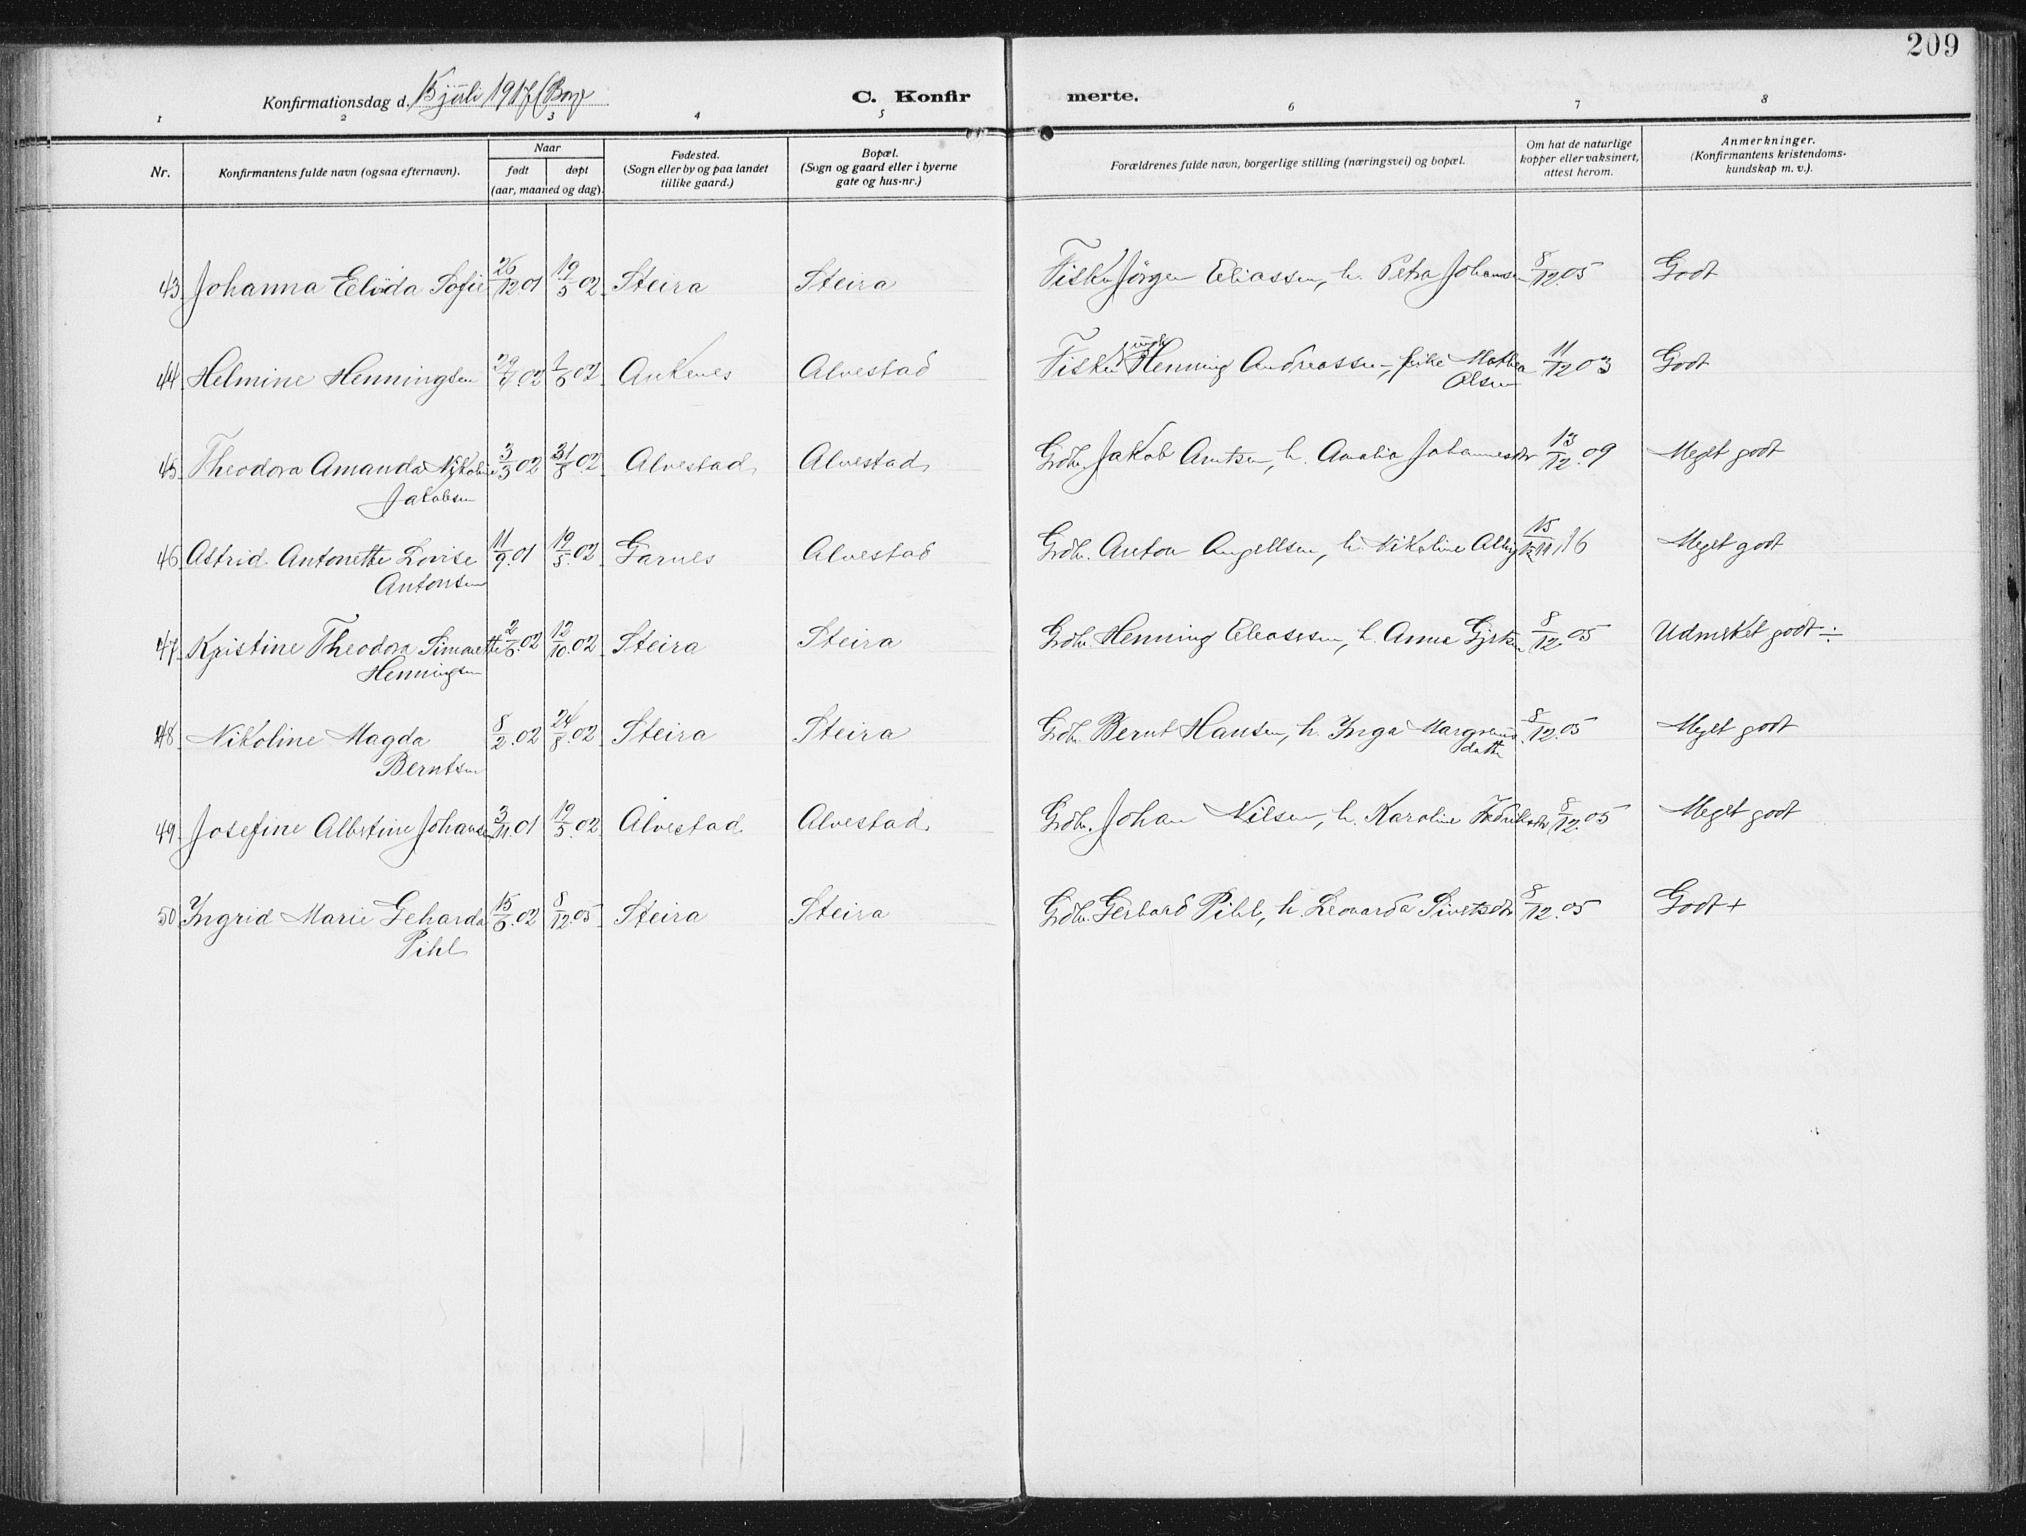 209
Konfirmationsdag d. 15 juli 1917 (Borge
C. Konfirmerte.
1 2 3 4 5 6 7 8
Nr.
Konfirmantens fulde navn (ogsaa efternavn).
Naar
født døpt
(aar, maaned og dag).
Fødested.
(Sogn eller by og paa landet
tillike gaard.)
Bopæl.
(Sogn og gaard eller i byerne
gate og hus-nr.)
Forældrenes fulde navn, borgerlige stilling (næringsvei) og bopæl.
Om hat de naturlige
kopper eller vaksinert,
attest herom.
Anmerkninger.
(Konfirmantens kristendoms-
kundskap m. v.).
43 Johanna Elida Sofie 26/12 01 19/5 02 Steira Steira Fisker Jörgen Eliassen, h. Petra Johansen 8/12.05 Godt
44 Helmine Henningsen 29/4 02 1/6 02 Ankenes Alvestad Fisker ungk Henning Andreassen, pike Mathea 11/12 03 Godt
Olsen
45 Theodora Amanda Nikoline 3/3 02 31/8 02 Alvestad Alvestad Grdbr. Jakob Arntsen, h. Amalia Johannesdtr 13/12.09 Meget godt
Jakobsen
46 Astrid Antonette Lovise 11/9.01 19/5.02 Garnes Alvestad Grdbr. Anton Angellsen, h. Nikoline 15/11.16 Meget godt
Antonsen
47 Kristine Theodora Simonette 2/6.02 12/10.02 Steira Steira Grdbr. Henning Eliassen, h. Anna 8/12.05 Udmerket godt ÷
Henningsen
48 Nikoline Magda 8/2.02 24/8.02 Steira Steira Grdbr. Bernt Hansen, h. Inga 8/12.05 Meget godt
Berntsen datter
49 Josefine Albertine Johansen 3/11.01 19/5.02 Alvestad Alvestad Grdbr. Johan Nilsen, h. Karoline Fredriksdtr 8/12.05 Meget godt
50 Ingrid Marie Geharda 15/6.02 8/12.05 Steira Steira Grdbr. Gerhard Pihl, h. Leonarda Sivertsdtr 8/12.05 Godt +
Pihl